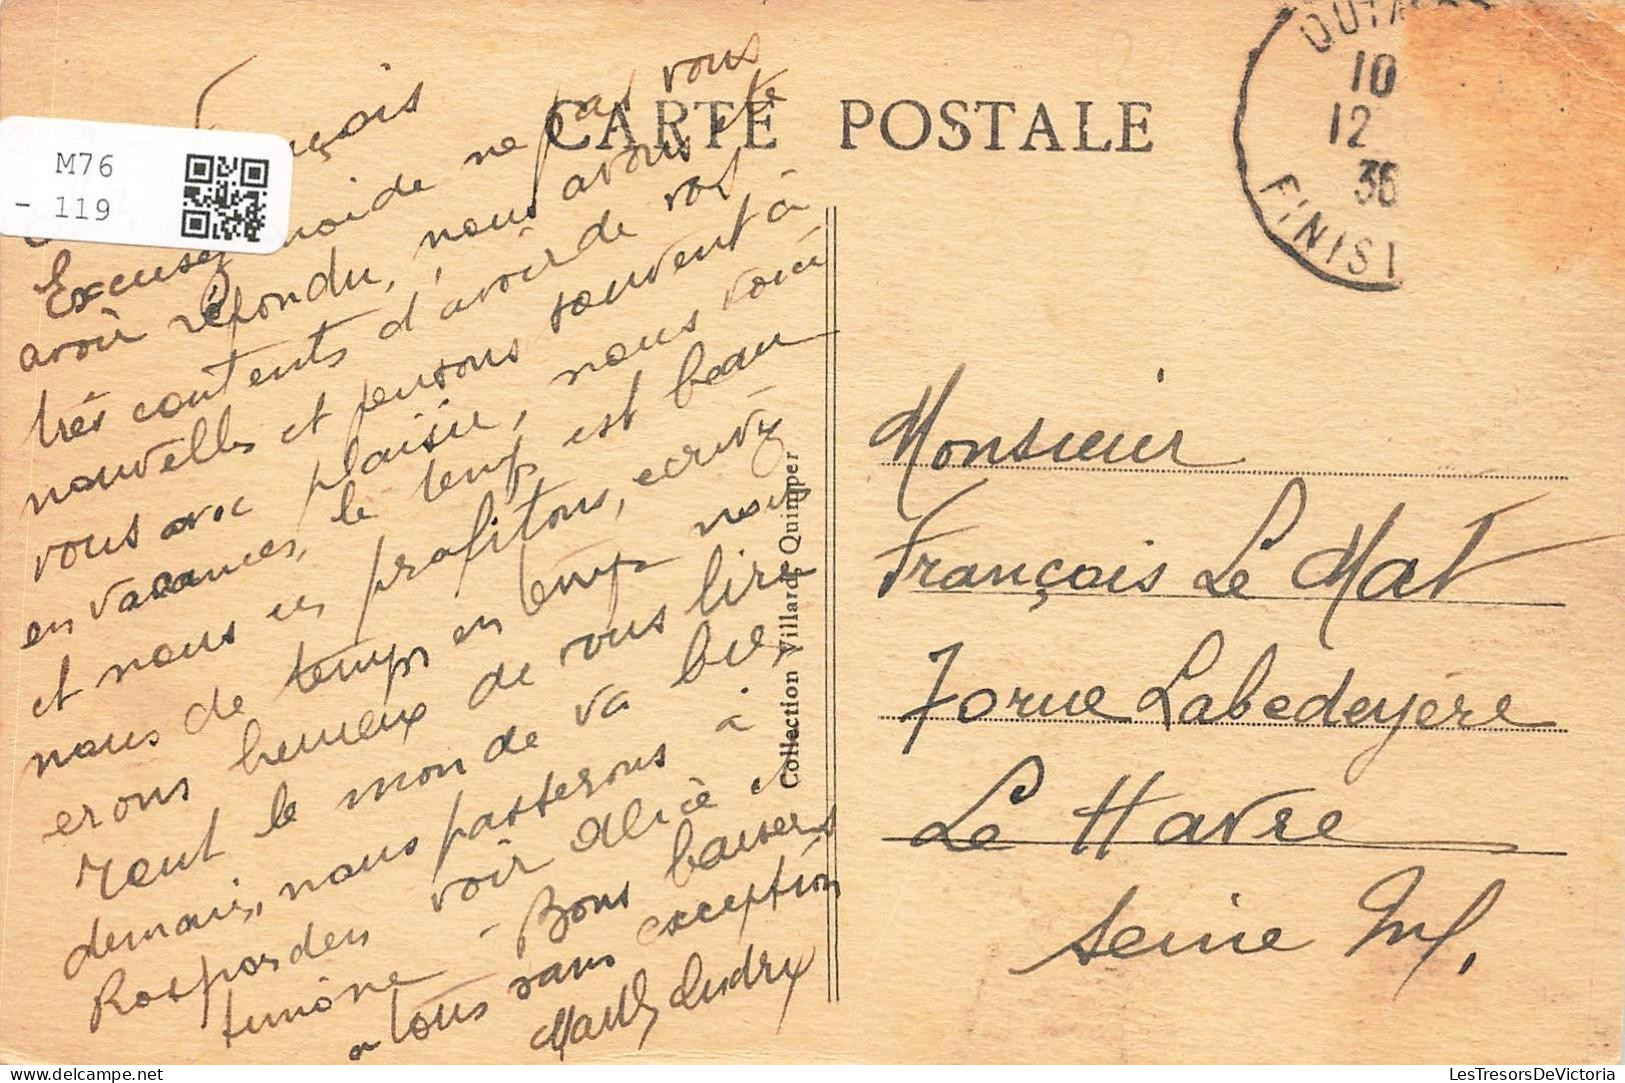 CARTE POSTALE
M76
- 119
10
12
36
FINIST
nçois
Excusez moi de ne pas vous
avoir répondu, nous avons été
très contents d'avoir de vos
nouvelles et pensons souvent à
vous avec plaisir, nous voici
en vacances, le temps est beau
et nous en profitons, ecrivez
nous de temps en temps nous
serons heureux de vous lire
Tout le monde va bien,
demain, nous passerons à
Rosporden voir Alice et
Simone - Bons baisers
a tous sans exception
Collection Villard, Quimper
Monsieur
François Le Mat
70 rue Labedoyère
Le Havre
Seine Inf.
LesTresorsDeVictoria